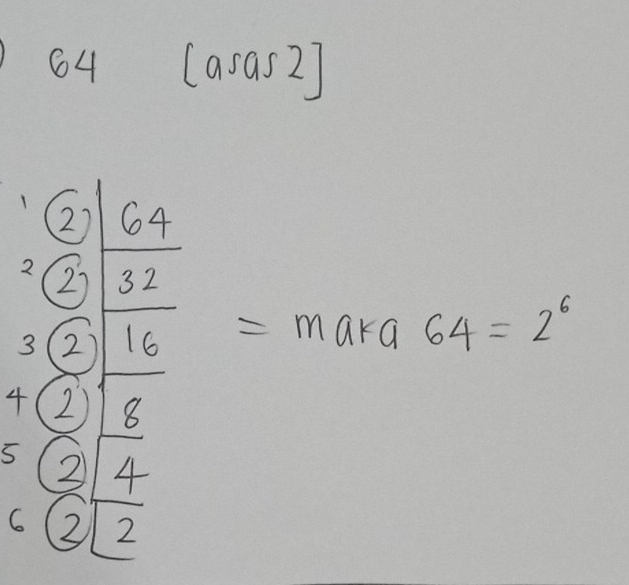 ) 64 [asas 2]
1 2 64
2 2 32
3 2 16
= maka 64 = 2⁶
4 2 8
5 2 4
6 2 2